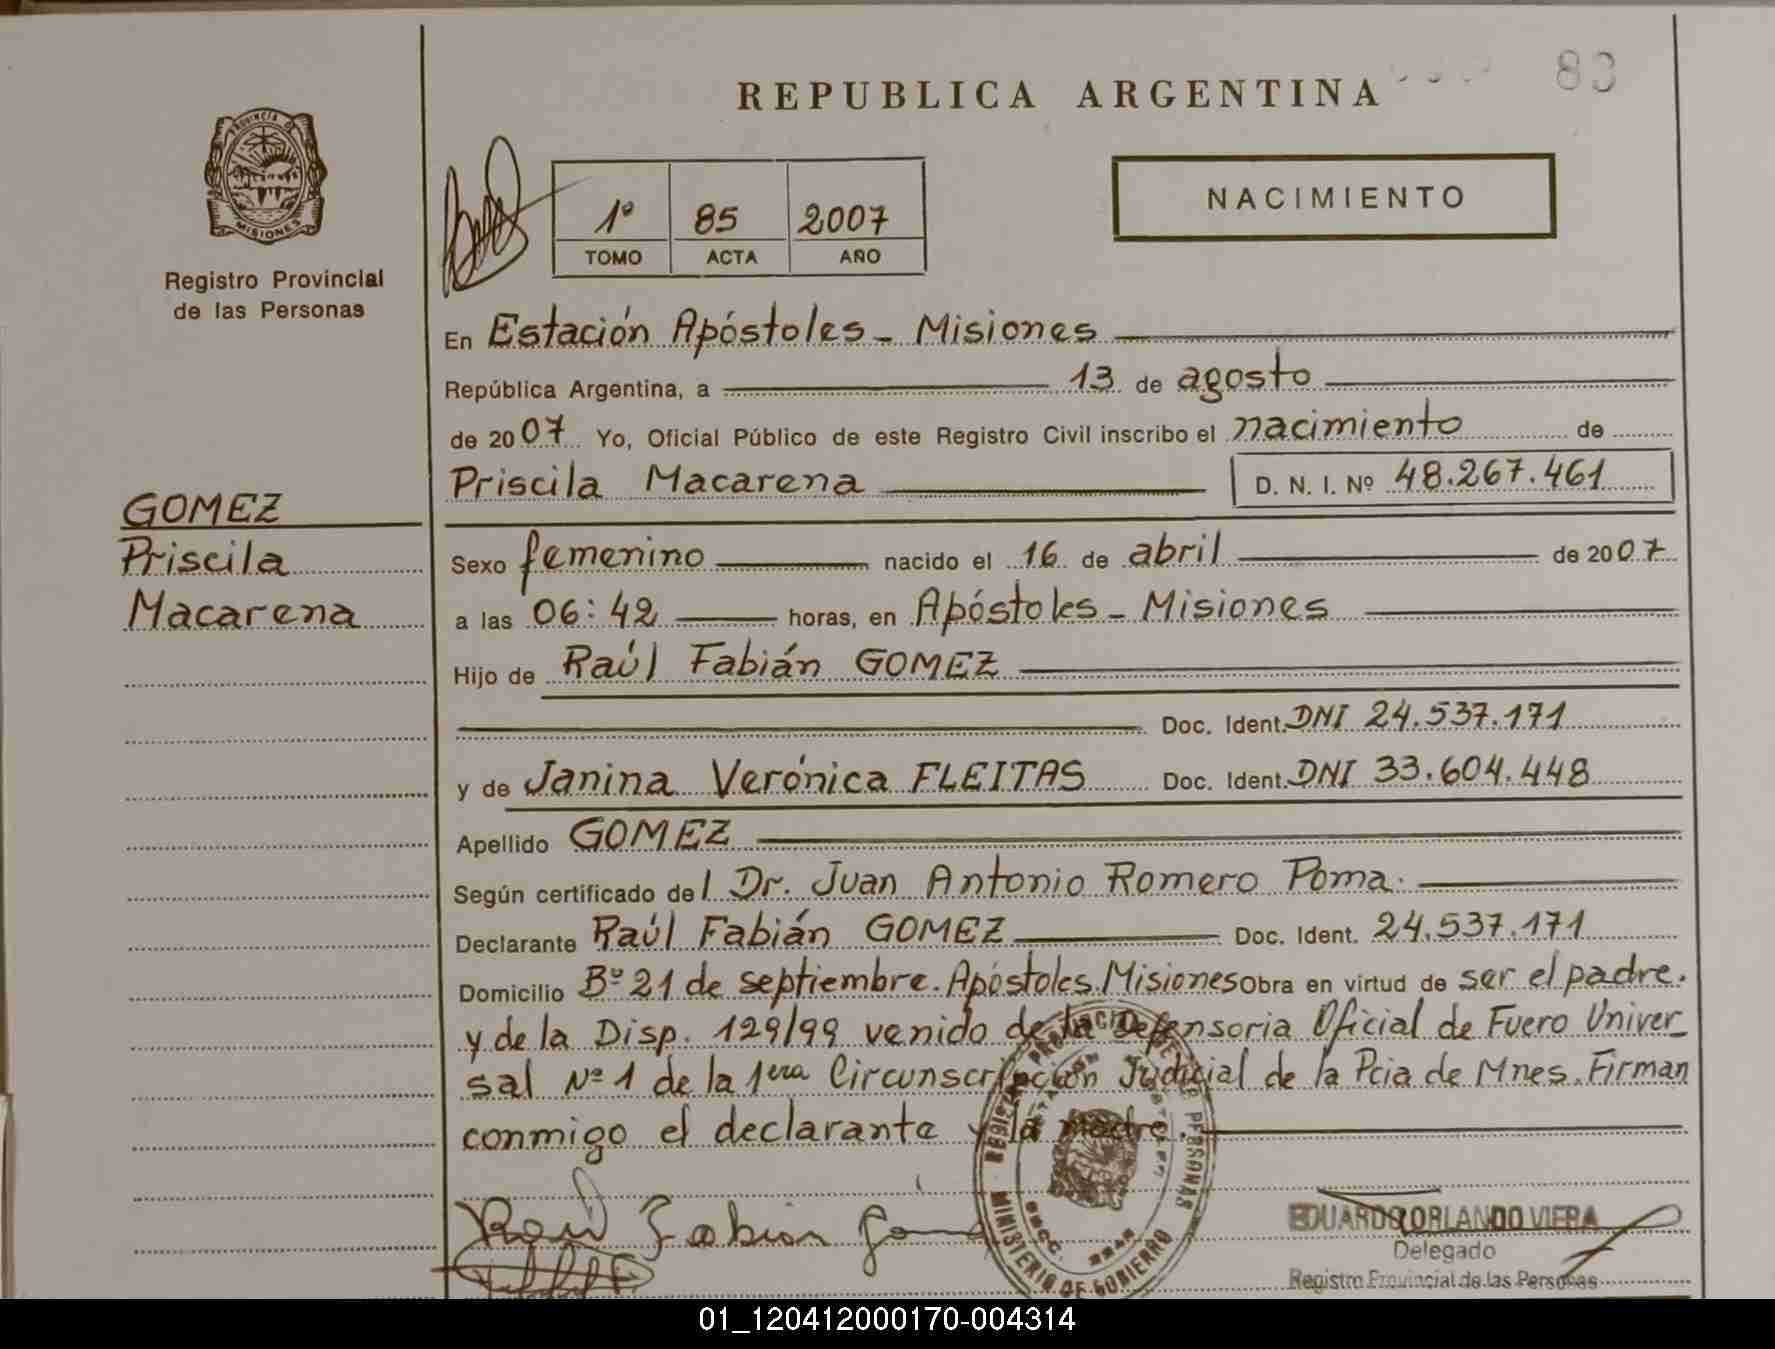 83
REPUBLICA ARGENTINA
PROVINCIA DE
MISIONES
Registro Provincial
de las Personas
1º 85 2007
TOMO ACTA AÑO
NACIMIENTO
En Estación Apóstoles - Misiones
República Argentina, a 13 de agosto
de 2007 Yo, Oficial Público de este Registro Civil inscribo el nacimiento de
Priscila Macarena D. N. I. Nº 48.267.461
GOMEZ
Priscila
Macarena
Sexo femenino nacido el 16 de abril de 2007
a las 06:42 horas, en Apóstoles - Misiones
Hijo de Raúl Fabián GOMEZ
Doc. Ident. DNI 24.537.171
y de Janina Verónica FLEITAS Doc. Ident. DNI 33.604.448
Apellido GOMEZ
Según certificado del Dr. Juan Antonio Romero Poma.
Declarante Raúl Fabián GOMEZ Doc. Ident. 24.537.171
Domicilio Bº 21 de septiembre. Apóstoles. Misiones Obra en virtud de ser el padre.
y de la Disp. 129/99 venido de la Defensoria Oficial de Fuero Univer_
sal Nº 1 de la 1era Circunscripción Judicial de la Pcia de Mnes. Firman
conmigo el declarante y la madre.
Raul Fabian
MINISTERIO DE GOBIERNO
EDUARDO ORLANDO VIERA
Delegado
Registro Provincial de las Personas
01_120412000170-004314